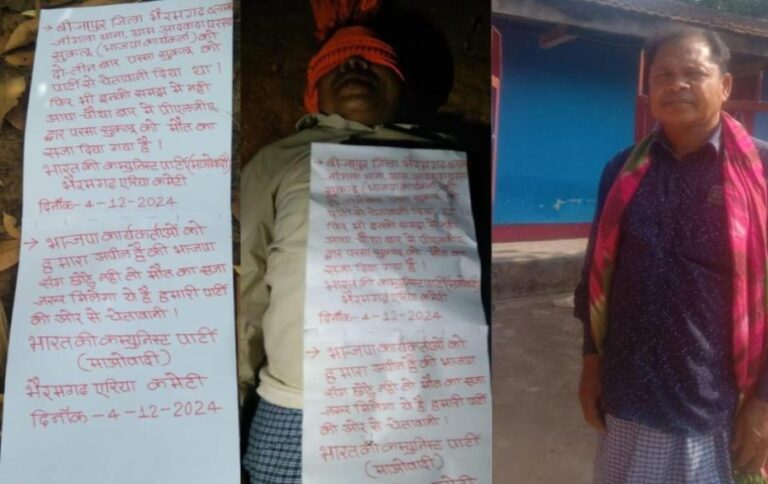 → बीजापुर जिला भैरमगढ ब्लाक
जांगला थाना, ग्राम आदवाडा परसा
सुकलू (भाजपा कार्यकर्ता) को
दो-तीन बार परसा सुकलू को
पार्टी से चेतावनी दिया था।
फिर भी इनको समझ में नही
आया चौथा बार में पीएलजीए
द्वार परसा सुकलू को मौत का
सजा दिया गया है।
भारत की कम्युनिस्ट पार्टी (माओवादी)
भैरमगढ एरिया कमेटी
दिनाँक-4-12-2024
→ भाजपा कार्यकर्ताओं को
हमारा अपील है की भाजपा
संग छोड़े नही तो मौत का सजा
जरूर मिलेगा ये है हमारी पार्टी
की ओर से चेतावनी।
भारत की कम्युनिस्ट पार्टी
(माओवादी)
भैरमगढ एरिया कमेटी
दिनाँक-4-12-2024
→ बीजापुर जिला भैरमगढ ब्लाक
जांगला थाना, ग्राम आदवाडा परसा
सुकलू (भाजपा कार्यकर्ता) को
दो-तीन बार परसा सुकलू को
पार्टी से चेतावनी दिया था।
फिर भी इनको समझ में नही
आया चौथा बार में पीएलजीए
द्वार परसा सुकलू को मौत का
सजा दिया गया है।
भारत की कम्युनिस्ट पार्टी (माओवादी)
भैरमगढ एरिया कमेटी
दिनाँक-4-12-2024
→ भाजपा कार्यकर्ताओं को
हमारा अपील है की भाजपा
संग छोड़े नही तो मौत का सजा
जरूर मिलेगा ये है हमारी पार्टी
की ओर से चेतावनी।
भारत की कम्युनिस्ट पार्टी
(माओवादी)